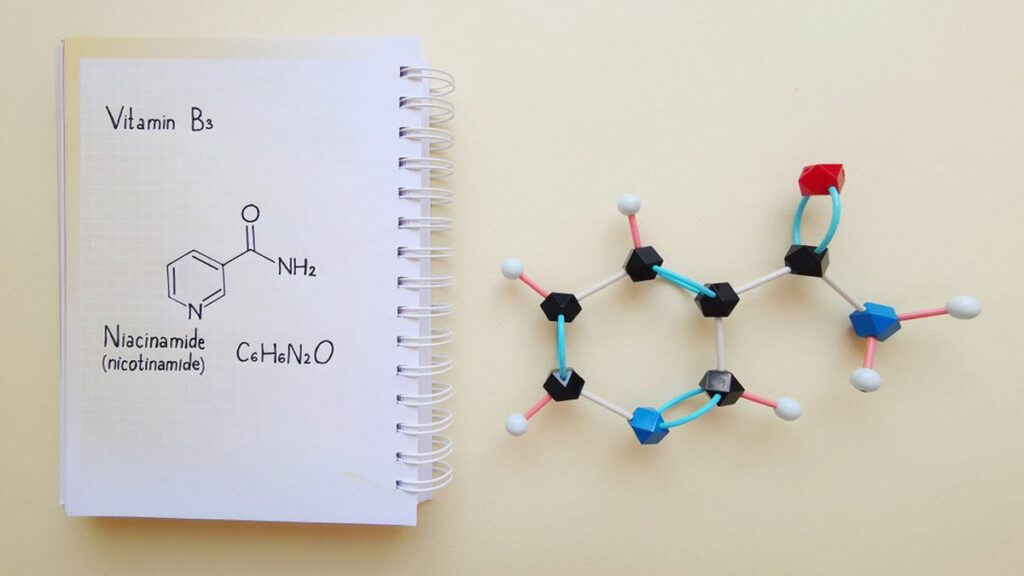 Vitamin B₃
O
NH₂
N
Niacinamide
(nicotinamide)
C₆H₆N₂O